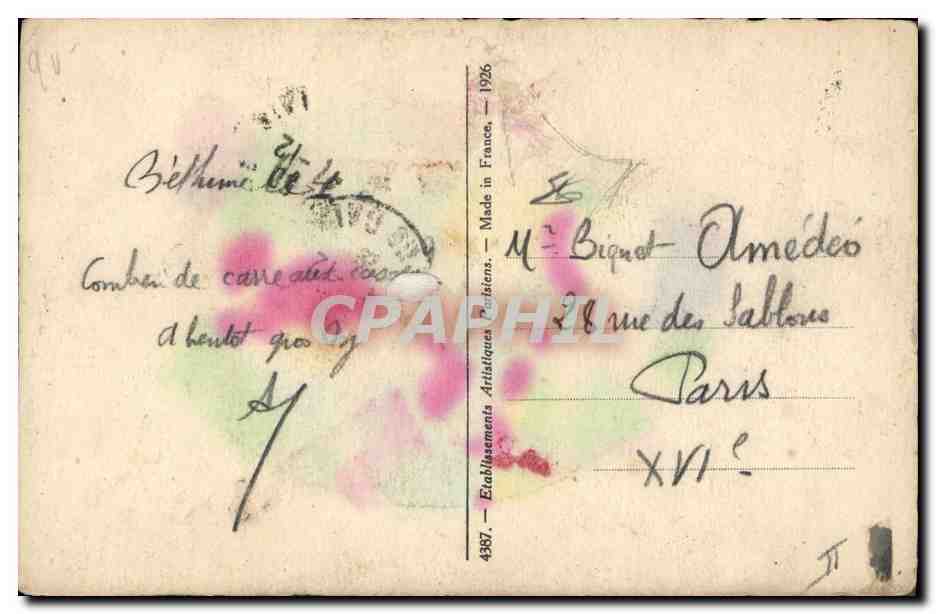 Béthune le 4
Combien de carreaux cassés
A bientôt gros
4387. — Etablissements Artistiques Parisiens. — Made in France. — 1926
Mr Biquet Amédéo
28 rue des Sablons
Paris
XVIe
II
CPAPHIL